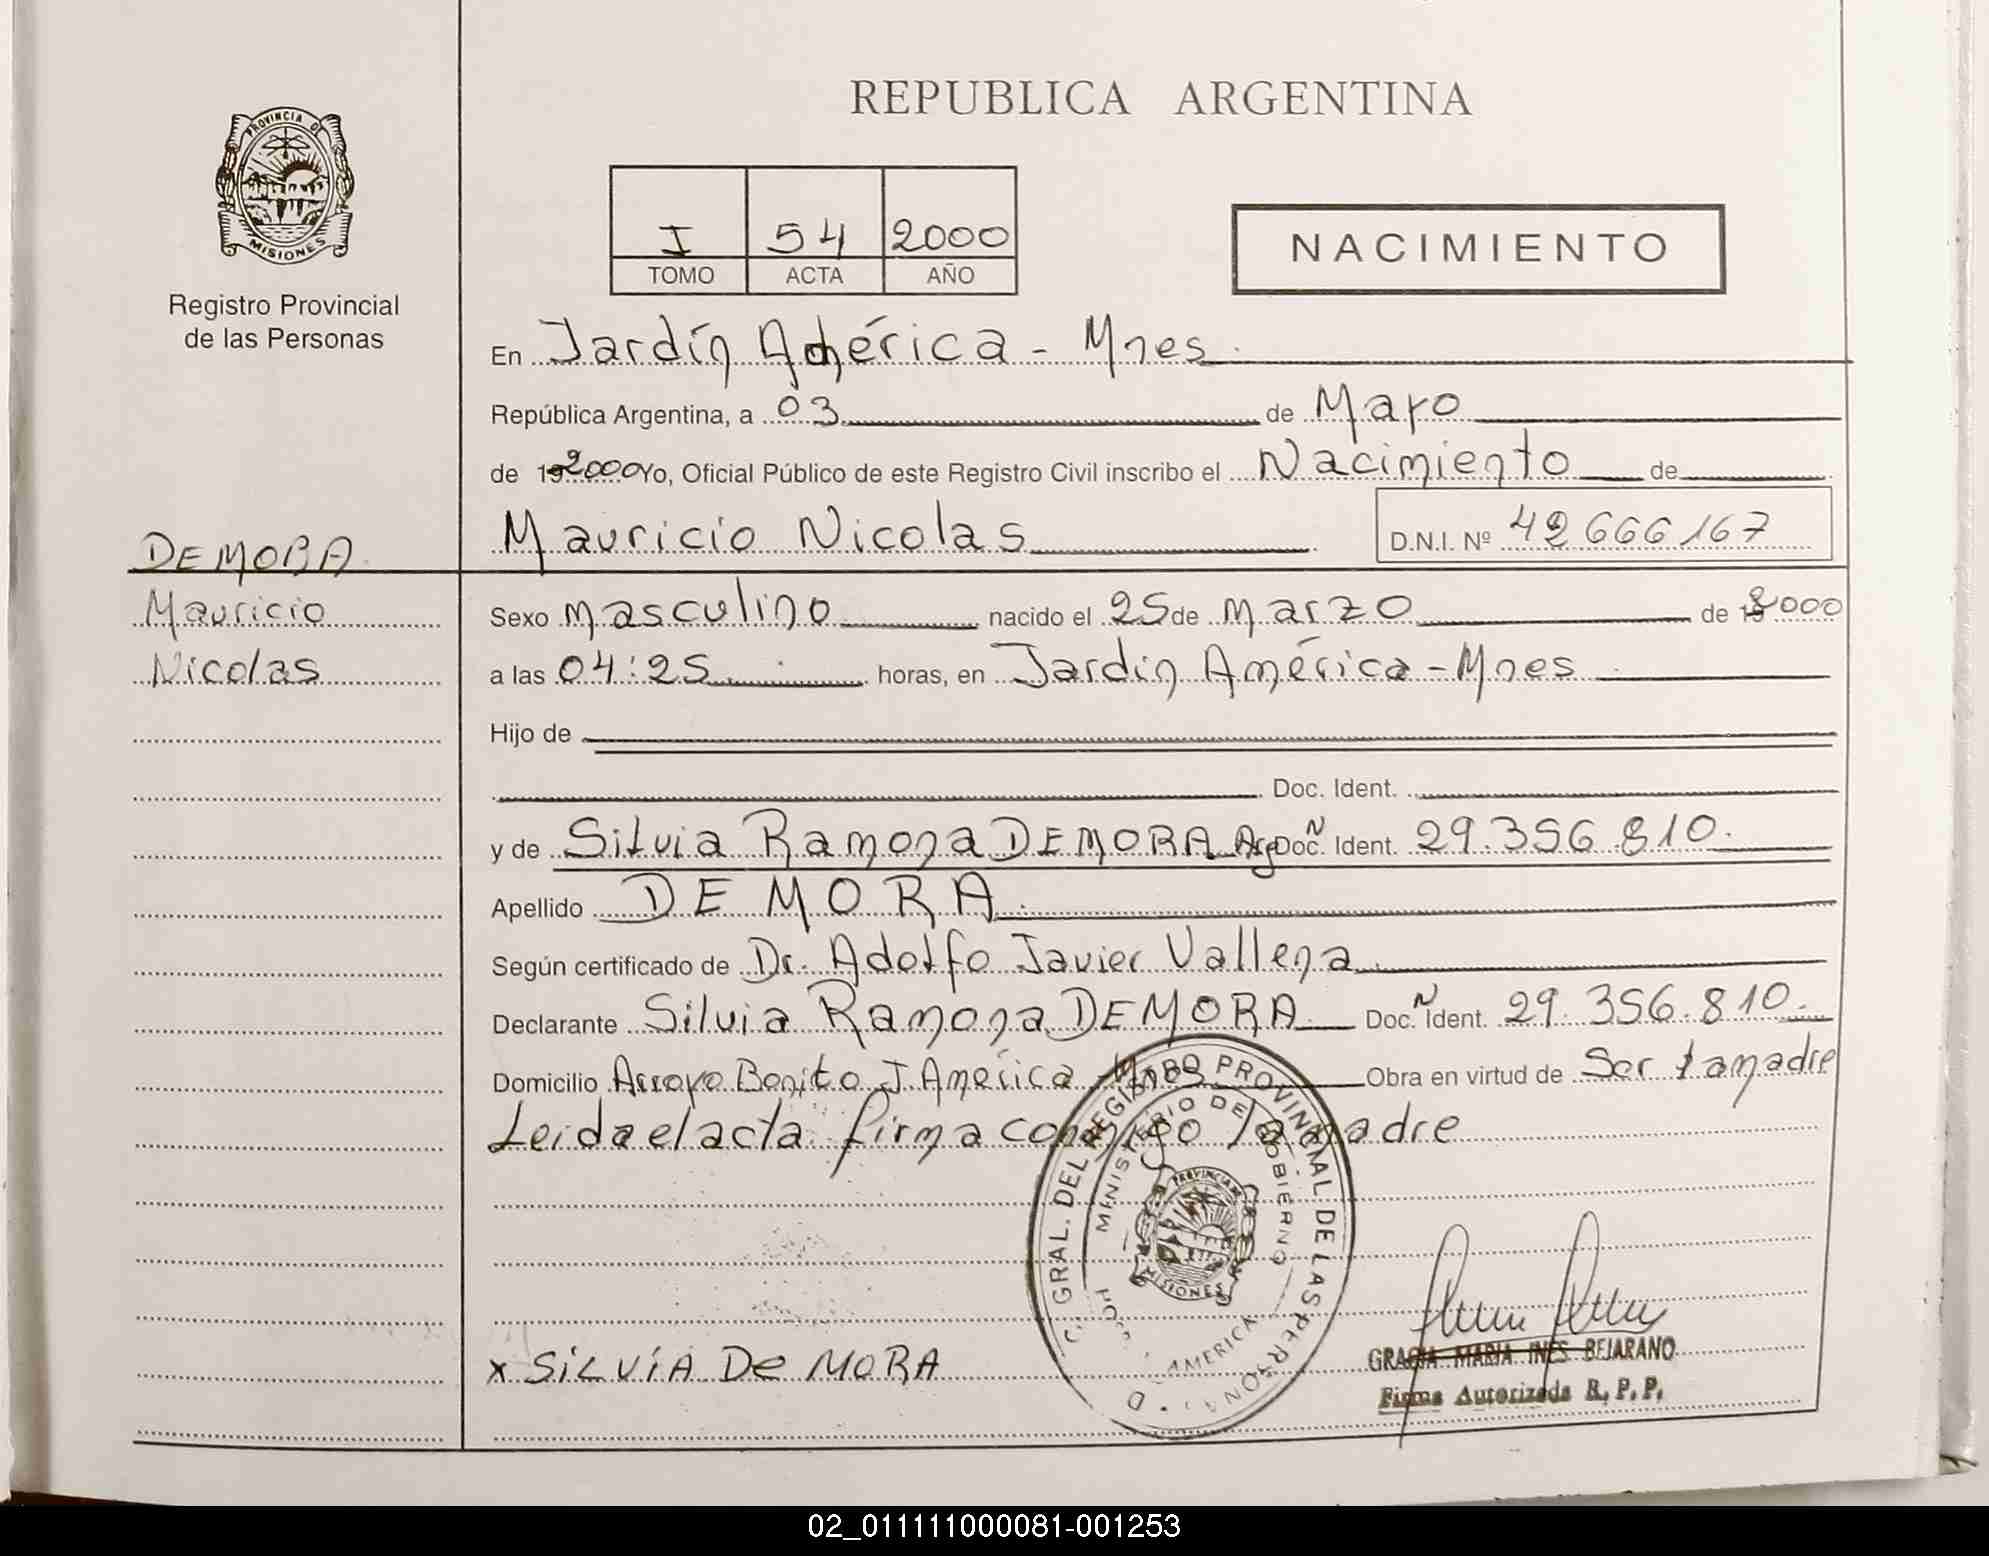 REPUBLICA ARGENTINA
PROVINCIA DE
MISIONES
Registro Provincial
de las Personas
I 54 2000
TOMO ACTA AÑO
NACIMIENTO
En Jardín América - Mnes.
República Argentina, a 03 de Mayo
de 192000 Yo, Oficial Público de este Registro Civil inscribo el Nacimiento de
Mauricio Nicolas D.N.I. Nº 42666167
DE MORA
Mauricio
Nicolas
Sexo Masculino nacido el 25 de Marzo de 192000
a las 04:25 horas, en Jardín América - Mnes
Hijo de
Doc. Ident.
y de Silvia Ramona DE MORA Arg. Doc. N Ident. 29.356.810.
Apellido DE MORA
Según certificado de Dr. Adolfo Javier Vallena
Declarante Silvia Ramona DE MORA Doc. N Ident. 29.356.810.
Domicilio Arroyo Bonito J. América Mnes Obra en virtud de Ser la madre
Leida el acta firma conmigo la madre
GRAL. DEL REGISTRO PROVINCIAL DE LAS PERSONAS
MINISTERIO DE GOBIERNO
PROVINCIA DE
MISIONES
AMERICA
x SiLViA De MORA
GRACIA MARIA INES BEJARANO
Firma Autorizada R.P.P.
02_011111000081-001253